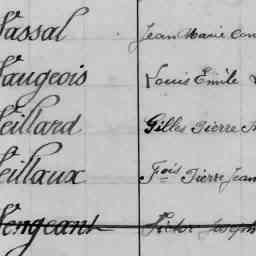 Vassal Jean Marie
Vaugeois Louis Emile
Veillard Gilles Pierre
Veillaux Fois Pierre Jean
Vengeant Victor Joseph